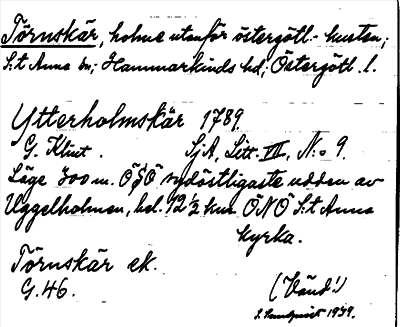 Törnskär, holme utanför östergötl. kusten;
S:t Anna sn; Hammarkinds hd; Östergötl. l.
Ytterholmskär 1789.
G. Klint. SjA, Litt. VII, N:o 9.
Läge 700 m. ÖSÖ sydöstligaste udden av
Uggelholmen, bel. 12 ½ km ÖNÖ S:t Anna
kyrka.
Törnskär ek.
G. 46.
(Vänd!)
1939.